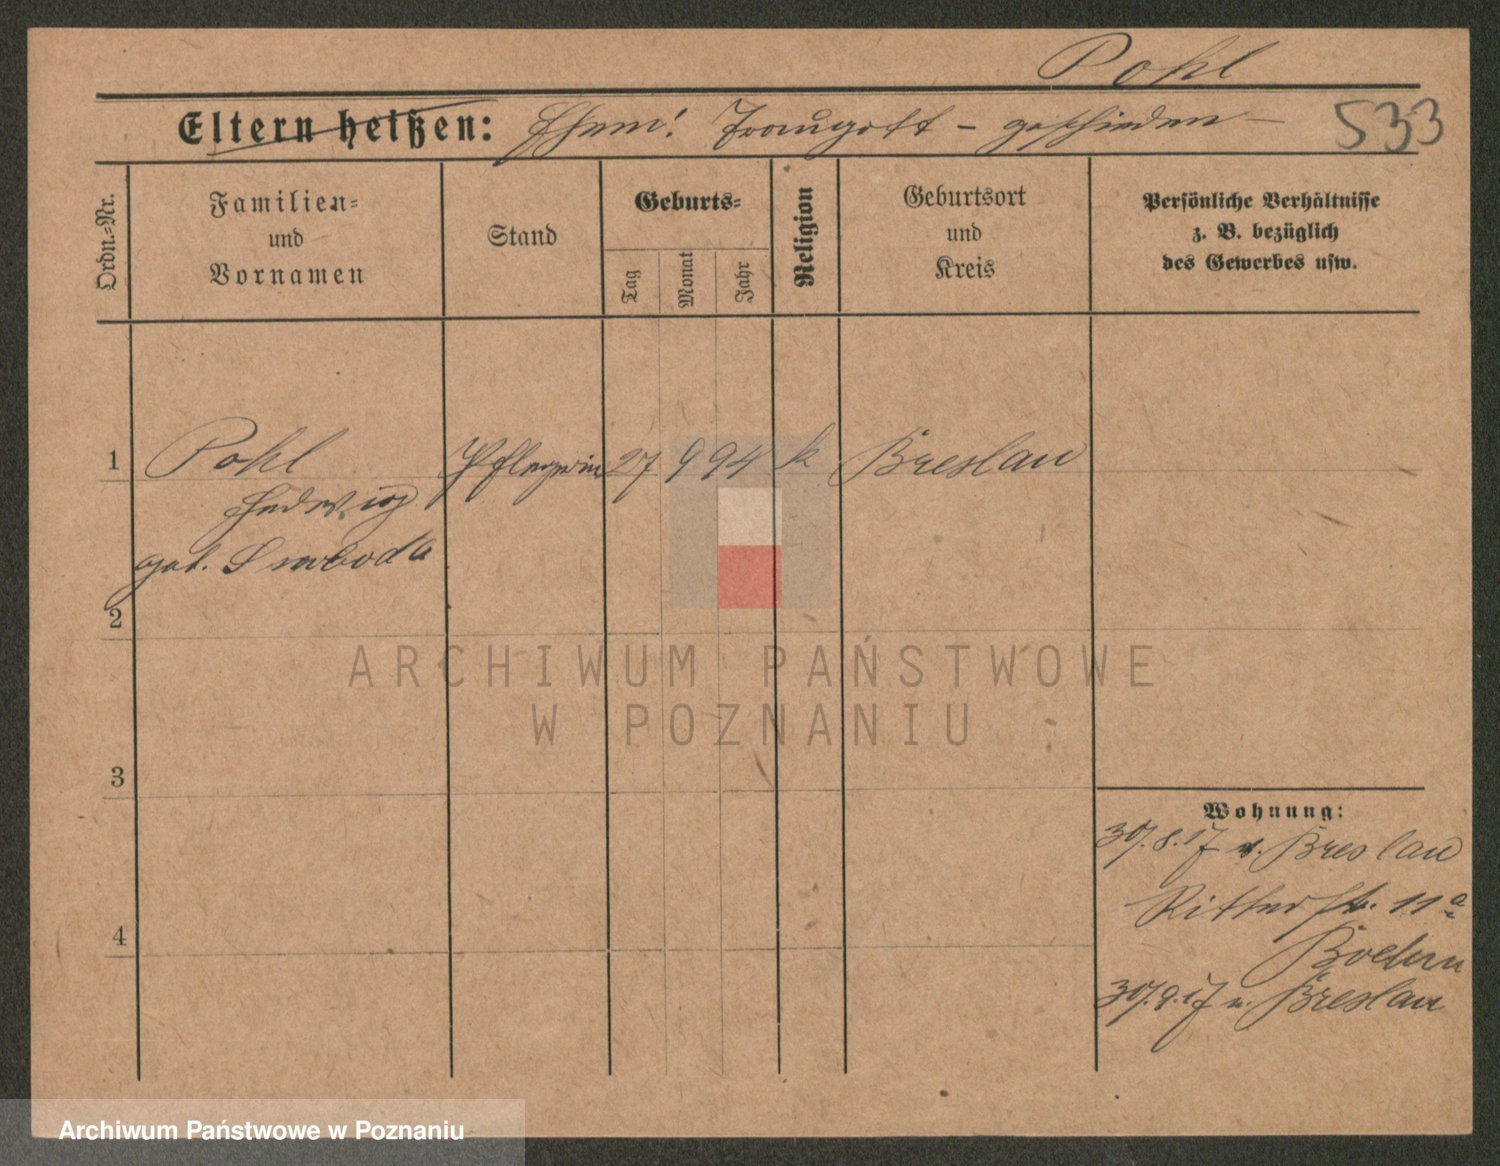 Pohl
Eltern heißen: Ehem: Traugott – geschieden –
533
Ordn.-Nr.
Familien-
und
Vornamen
Stand
Geburts-
Tag
Monat
Jahr
Religion
Geburtsort
und
Kreis
Persönliche Verhältnisse
z. B. bezüglich
des Gewerbes usw.
1 Pohl Pflegerin 27 9 94 k Breslau
Hedwig
geb. Swoboda
2
3
4
ARCHIWUM PAŃSTWOWE
W POZNANIU
Wohnung:
30/.8.17 v. Breslau
Ritterstr. 11a
30/.9.17 n. Breslau
Archiwum Państwowe w Poznaniu